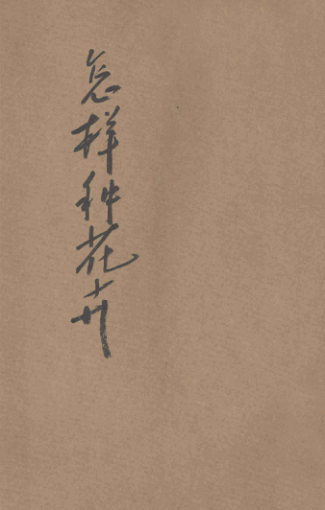 怎样种花卉